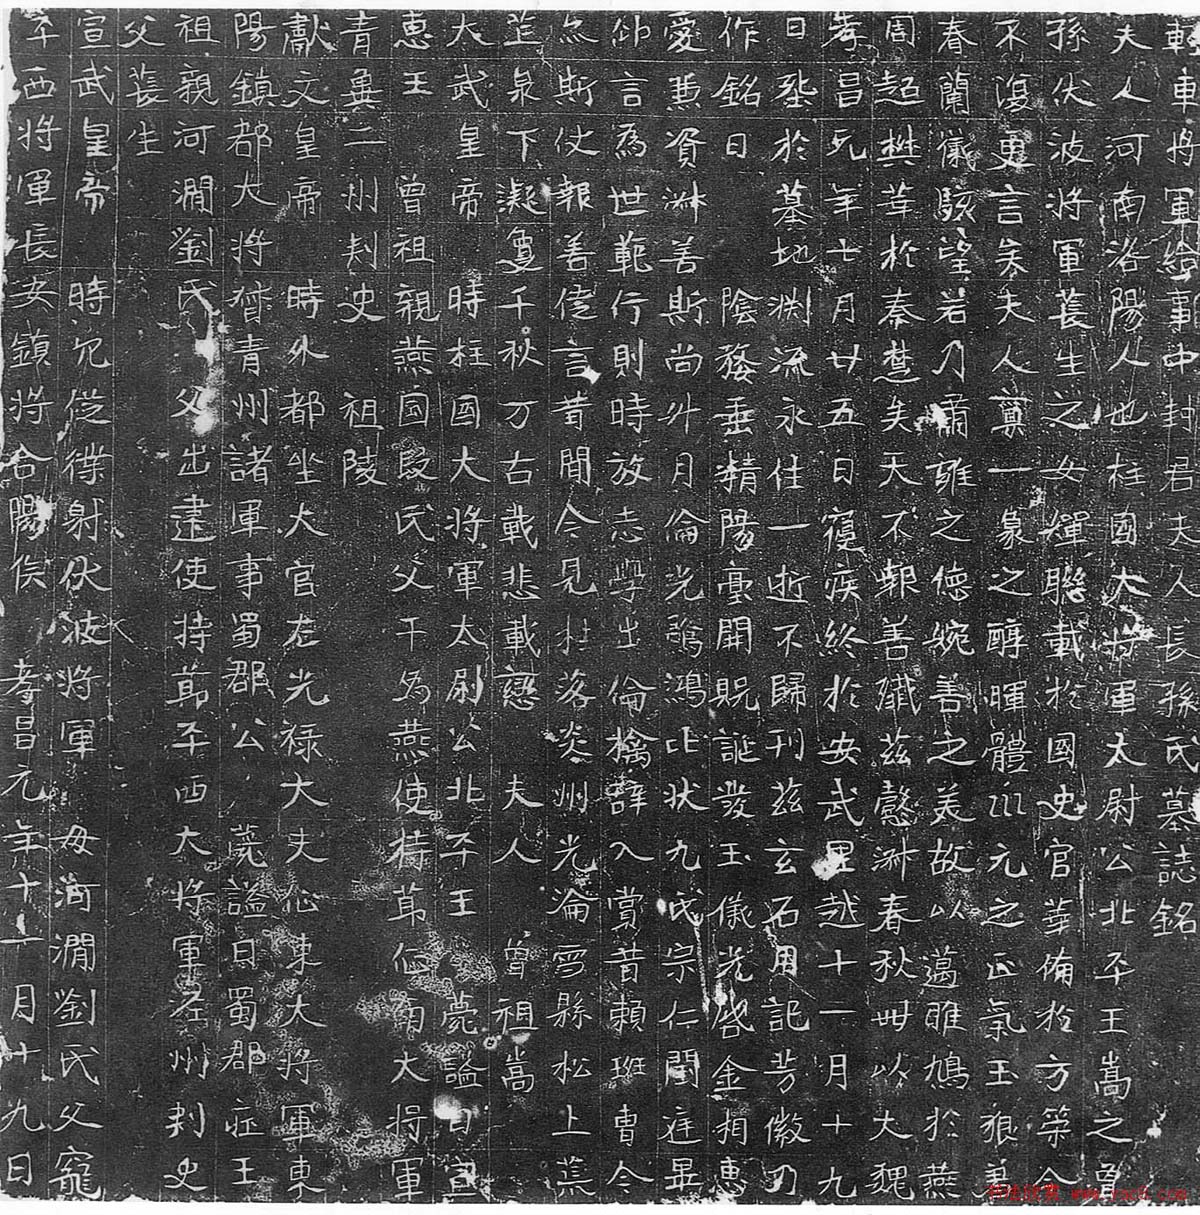 輕車將軍給事中封君夫人長孫氏墓誌銘
夫人河南洛陽人也柱國大將軍太尉公北平王嵩之曾
孫伏波將軍萇生之女嬋聯載於國史官華備於方策今
不復更言矣夫人稟一象之醇暉體巛元之正氣玉狼
春蘭儀駭望若乃肅雍之德婉善之美故以邁雎鳩於燕
周超樊莘於秦楚矣天不報善殲茲懿淋春秋丗以大魏
孝昌元年七月廿五日寢疾終於安武里越十二月十九
日塟於墓地淵流永住一逝不歸刊茲玄石用記芳徽乃
作銘曰 陰發垂精陽臺開貺誕發玉儀光啓金相惠
愛兼資淋善斯尚外月倫光鴻比状九氏宗仁閨庭畢
仰言為世範行則時放志學出倫摛辭入賞昔賴班曹今
斯仗報善虛言昔聞今見杜落炎州光淪雪縣松上荒
芒泉下凝夐千秋万古載悲載戀 夫人 曾祖嵩
大武皇帝 時柱國大將軍太尉公北平王 薨謚曰宣
惠王 曾祖親燕國段氏父干為燕使持節征南大將軍
青冀二州刾史 祖陵
獻文皇帝 時外都坐大官左光禄大夫征東大將軍東
陽鎮都大將督青州諸軍事蜀郡公 薨謚曰蜀郡莊王
祖親河澗劉氏父出建使持節平西大將軍涇州刾史
父萇生
宣武皇帝 時冗從僕射伏波將軍 母河澗劉氏父寵
平西將軍長安鎮將合陽侯 孝昌元年十二月十九日
書法欣賞 www.yac8.com